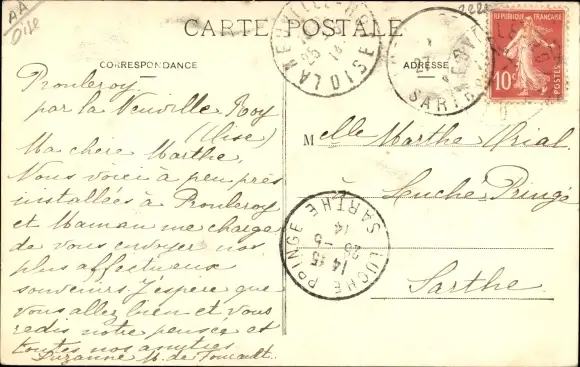 AA
Oise
CARTE POSTALE
CORRESPONDANCE
ADRESSE
REPUBLIQUE FRANÇAISE
10c
POSTES
LANEUVILLE-ROY
OISE
25
14
SARTHE
Pronleroy
par la Neuville Roy
(Oise)
Ma chère Marthe,
Nous voici à peu près
installées à Pronleroy
et Maman me charge
de vous envoyer nos
plus affectueux
souvenirs. J'espère que
vous allez bien et vous
redis notre pensée et
toutes nos amitiés
Suzanne M. de Foucault
Melle Marthe
Luché-Pringé
Sarthe
LUCHE PRINGE
SARTHE
14 15
26 -5
14